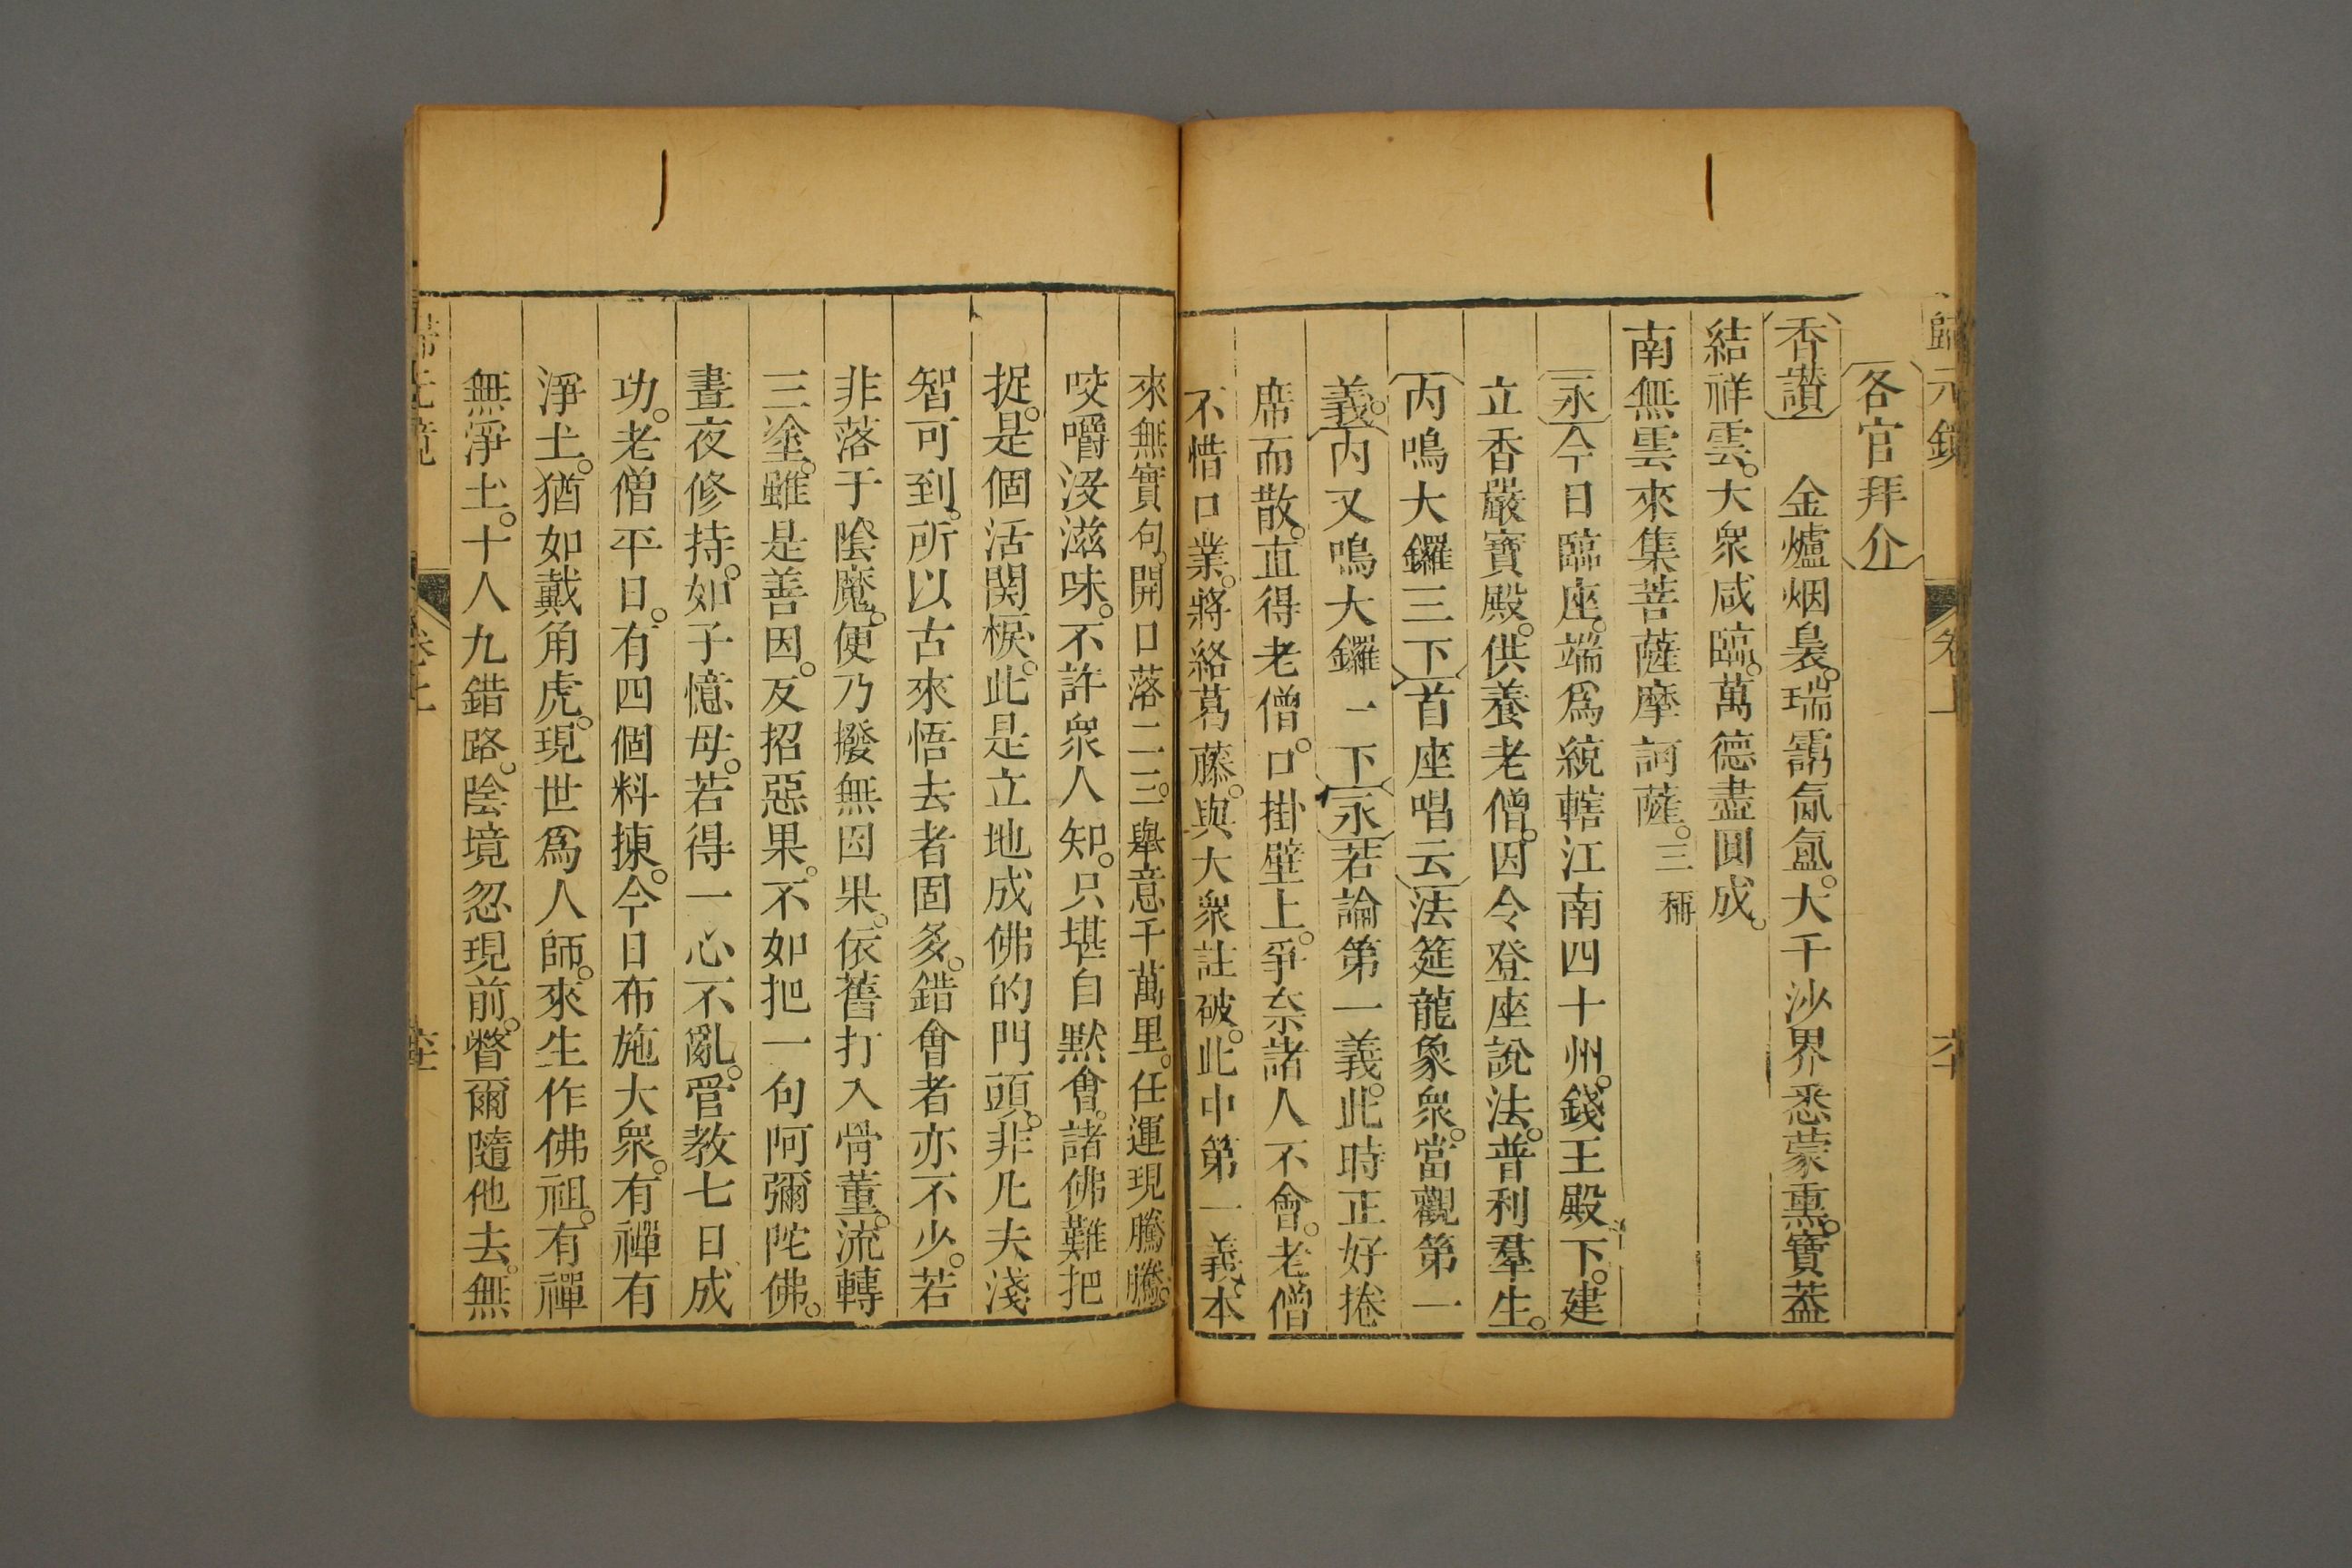 歸元鏡 卷上 六十
各官拜介
香讚 金爐烟裊。瑞靄氤氳。大千沙界悉蒙熏。寶蓋
結祥雲。大衆咸臨。萬德盡圓成。
南無雲來集菩薩摩訶薩。三稱
永今日臨座。端爲統轄江南四十州。錢王殿下。建
立香嚴寶殿。供養老僧。因令登座說法。普利羣生。
丙鳴大鑼三下首座唱云法筵龍象衆。當觀第一
義。丙又鳴大鑼一下永若論第一義。此時正好捲
席而散。直得老僧。口掛壁上。爭奈諸人不會。老僧
不惜口業。將絡葛藤。與大衆註破。此中第一義。本
來無實句。開口落二三。舉意千萬里。任運現騰騰。
咬嚼沒滋味。不許衆人知。只堪自默會。諸佛難把
捉。是個活関棙。此是立地成佛的門頭。非凡夫淺
智可到。所以古來悟去者固多。錯會者亦不少。若
非落于陰魔。便乃撥無因果。依舊打入骨董。流轉
三塗。雖是善因。反招惡果。不如把一句阿彌陀佛。
晝夜修持。如子憶母。若得一心不亂。管教七日成
功。老僧平日。有四個料揀。今日布施大衆。有禪有
淨土。猶如戴角虎。現世爲人師。來生作佛祖。有禪
無淨土。十人九錯路。陰境忽現前。瞥爾隨他去。無